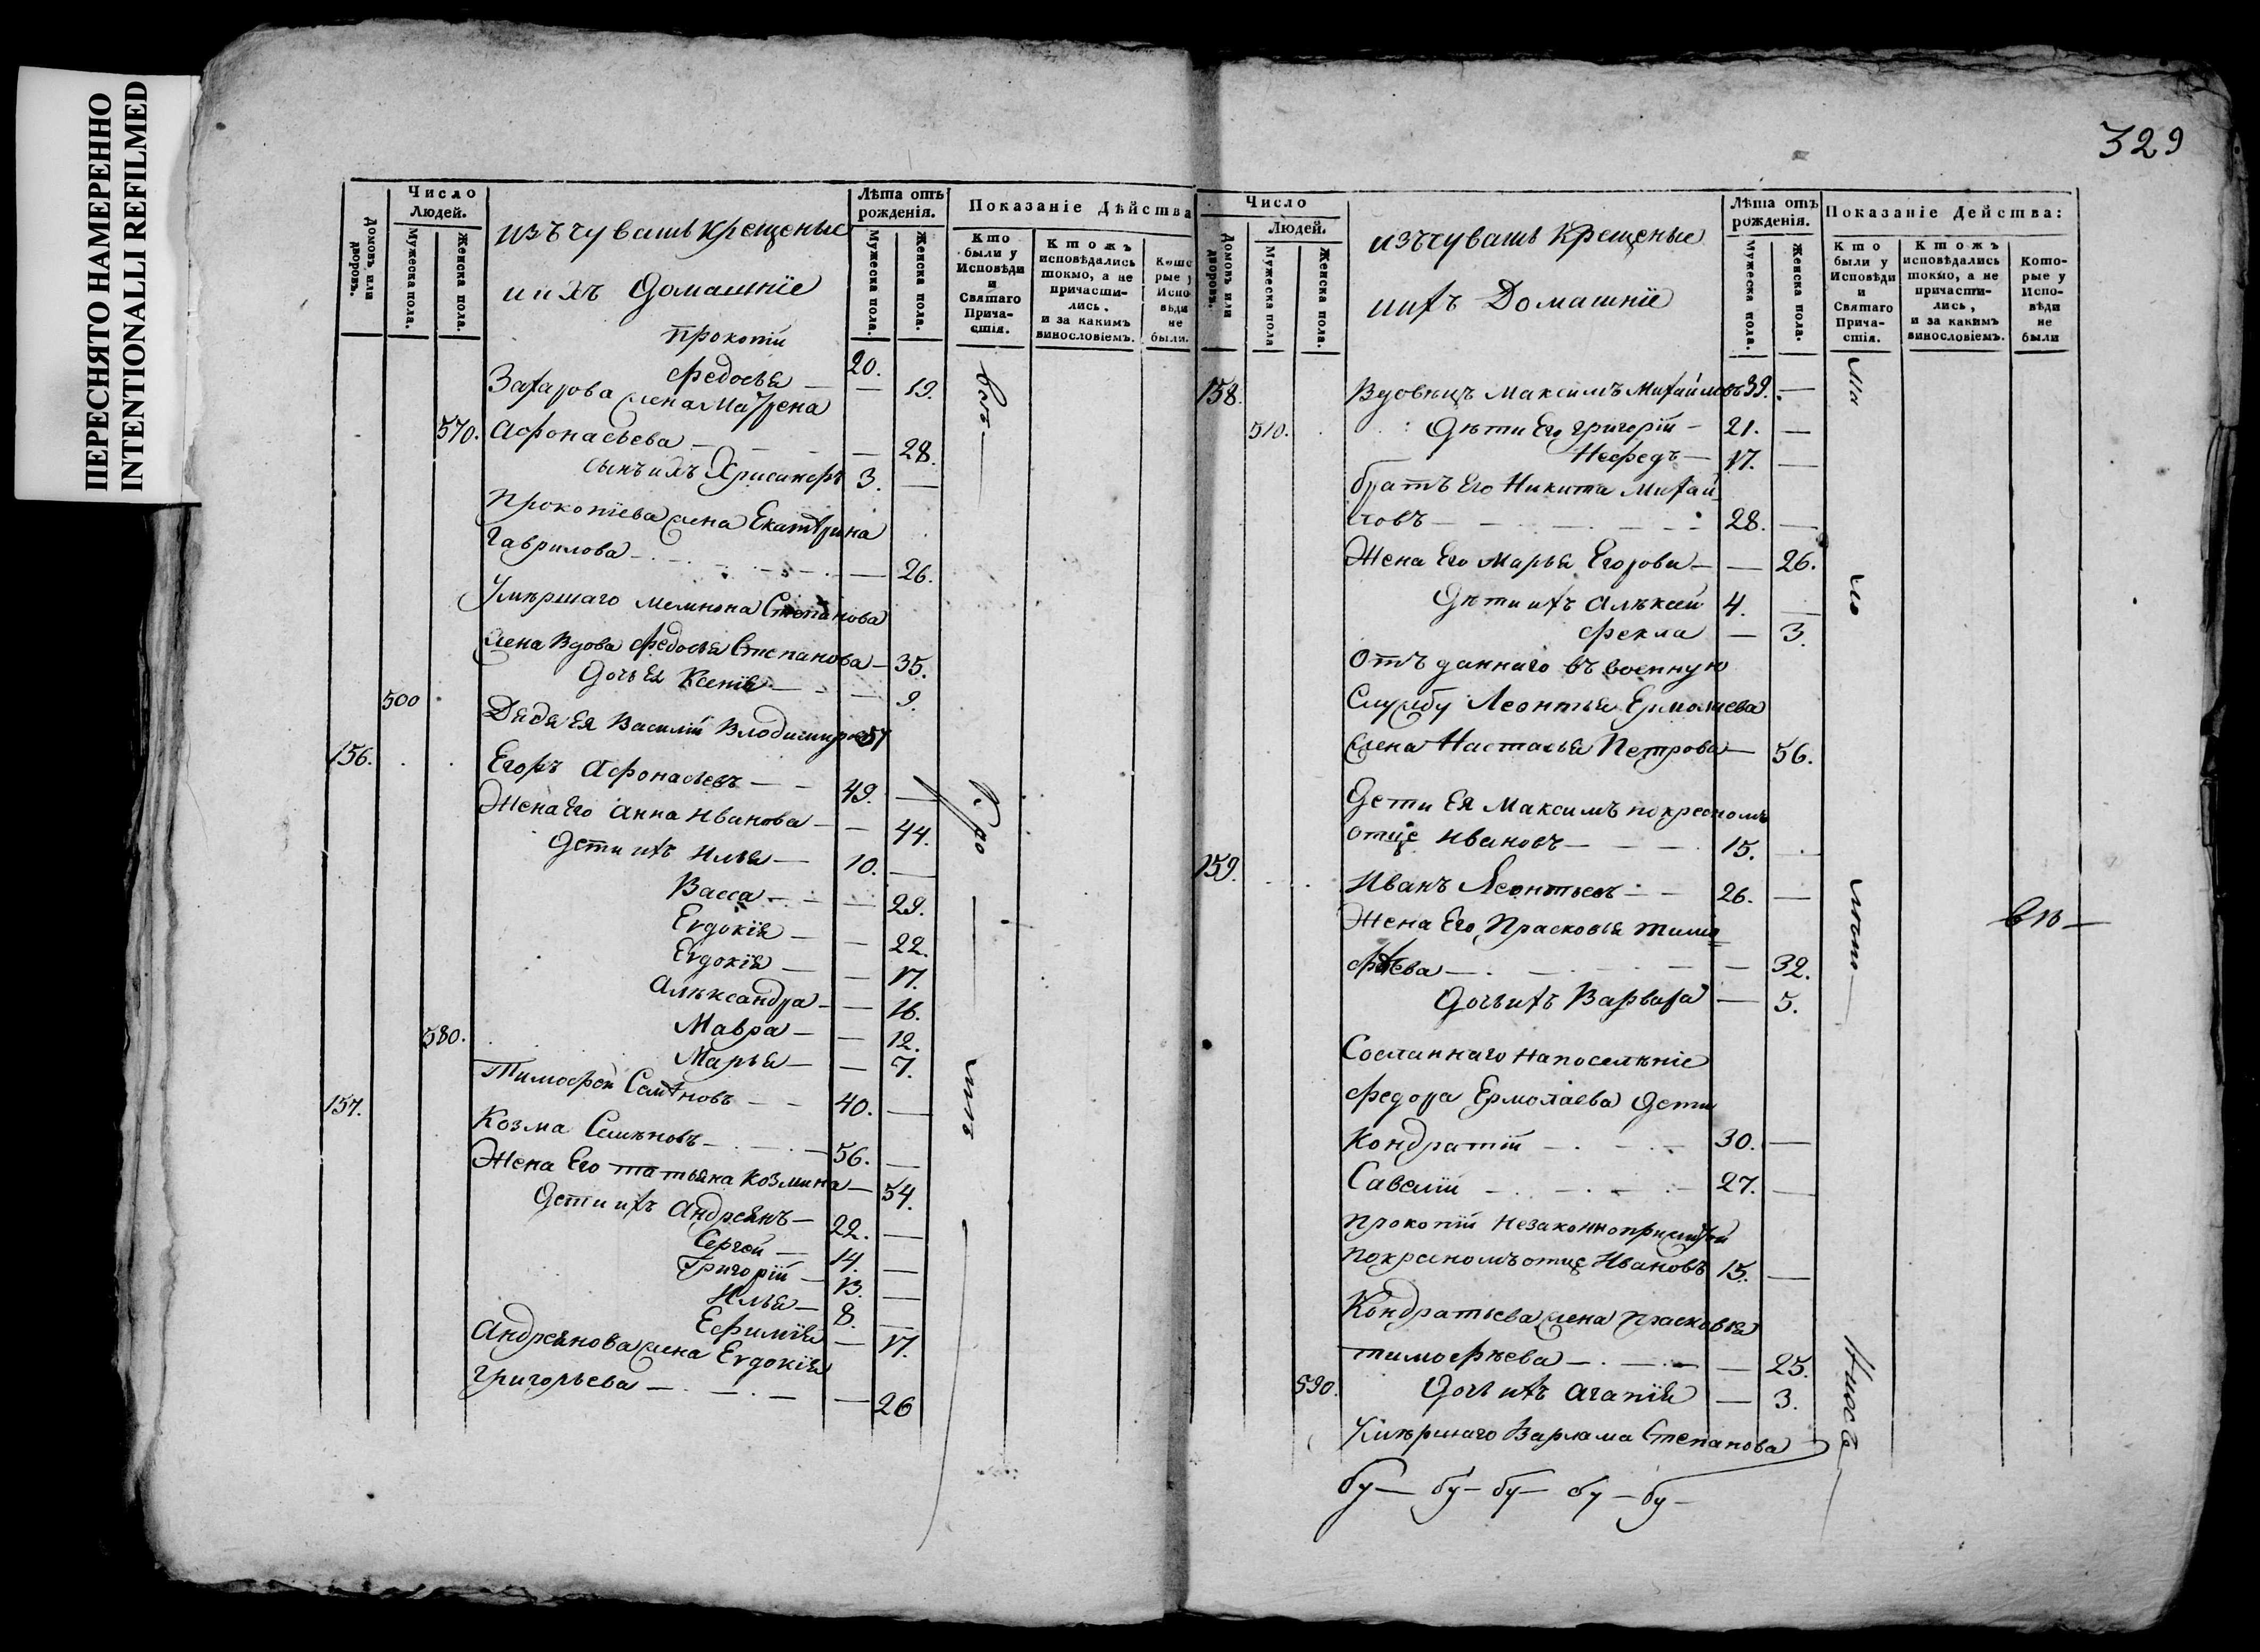 ПЕРЕСНЯТО НАМЕРЕННО
INTENTIONALLI REFILMED
329
Домовъ или дворовъ.
Число Людей.
Мужеска пола.
Женска пола.
изъ чувашъ крещеные
и ихъ Домашнїе
Лѣта отъ рожденія.
Мужеска пола.
Женска пола.
Показаніе Дѣйства
Кто были у Исповѣди и Святаго Причастія.
Ктожъ исповѣдались токмо, а не причастились, и за какимъ винословіемъ.
Которые у Исповѣди не были.
Прокопїй 20.
Федосья — — 19.
Захарова жена Матрена
570. Афонасьева — — 28.
сынъ ихъ Хрисанфъ 3. —
Прокопїева жена Екатерина
Гаврилова — — 26.
Умѣршаго Мемнона Степанова
жена вдова Федосья Степанова — 35.
Дочь ея Ксенїя — — 9.
500 Дядя ея Василїй Владимировъ 57
156. Егоръ Афонасьевъ — 49. —
Жена Его Анна Иванова — — 44.
Дети ихъ Илья — 10. —
Васса — — 29.
Евдокїя — — 22.
Евдокїя — — 17.
Алѣксандра — — 16.
580. Мавра — — 12.
Марья — — 7.
Тимофей Семѣновъ — 40. —
157. Козма Семѣновъ — 56. —
Жена Его Татьяна Козмина — 54.
Дети ихъ Андреянъ — 22. —
Сергѣй — 14. —
Григорїй — 13. —
Илья — 8. —
Ефимїя — 17.
Андреянова жена Евдокїя
Григорьева — — 26
Домовъ или дворовъ.
Число Людей.
Мужеска пола
Женска пола.
изъ чувашъ крещеные
ихъ Домашнїе
Лѣта отъ рожденія.
Мужеска пола.
Женска пола.
Показаніе Действа:
Кто были у Исповѣди и Святаго Причастія.
Ктожъ исповѣдались токмо, а не причастились, и за какимъ винословіемъ.
Которые у Исповѣди не были
158. Вдовецъ Максимъ Михайловъ 39. —
510. Дѣти Его Григорїй — 21. —
Нефедъ — 17. —
братъ Его Никита Михай
ловъ — 28. —
Жена Его Марья Егорова — — 26.
Дѣти ихъ Алѣксей 4. —
Фекла — 3.
Отъ даннаго въ военную
Службу Леонтья Ермолаева
жена Настасья Петрова — 56.
Дети Ея Максимъ по кресном
отце Ивановъ — 15. —
159. Иванъ Леонтьевъ — 26. —
Жена Его Прасковья Тимо
фѣева — — 32.
Дочь ихъ Варвара — 5.
Сосланнаго на посѣленїе
Федора Ермолаева Дети
Кондратїй — 30. —
Савелїй — 27. —
Прокопїй незаконноприжитой
по кресномъ отце Ивановъ 15. —
Кондратьева жена Прасковья
Тимофѣева — — 25.
590. Дочь ихъ Агапїя — 3.
Умѣршаго Варлама Степанова
бу— бу— бу— бу— бу—